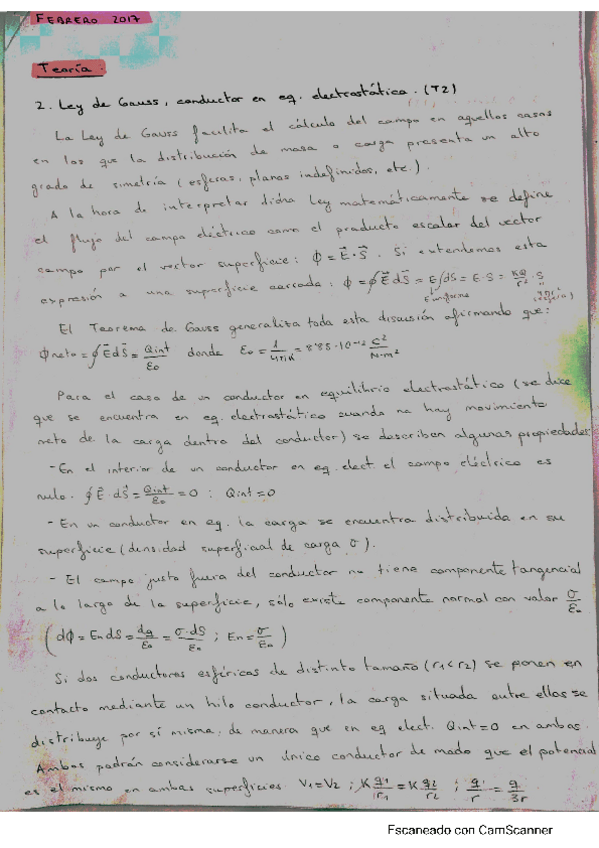 FEBRERO 2017
Teoría.
2. Ley de Gauss, conductor en eq. electrostático. (T2)
La Ley de Gauss facilita el cálculo del campo en aquellos casos
en los que la distribución de masa o carga presenta un alto
grado de simetría (esferas, planos indefinidos, etc.).
A la hora de interpretar dicha Ley matemáticamente se define
el flujo del campo eléctrico como el producto escalar del vector
campo por el vector superficie: ϕ = E⃗·S⃗. Si extendemos esta
expresión a una superficie cerrada: ϕ = ∮E⃗dS⃗ = E∫dS = E·S = KQ/r²·S
E uniforme (esfera)
El Teorema de Gauss generaliza toda esta discusión afirmando que:
ϕneto = ∮E⃗dS⃗ = Qint/ε₀ donde ε₀ = 1/4πK = 8'85·10⁻¹² C²/N·m²
Para el caso de un conductor en equilibrio electrostático (se dice
que se encuentra en eq. electrostático cuando no hay movimiento
neto de la carga dentro del conductor) se describen algunas propiedades
- En el interior de un conductor en eq. elect. el campo eléctrico es
nulo. ∮E⃗·dS⃗ = Qint/ε₀ = 0 ; Qint = 0
- En un conductor en eq. la carga se encuentra distribuida en su
superficie (densidad superficial de carga σ).
- El campo justo fuera del conductor no tiene componente tangencial
a lo largo de la superficie, sólo existe componente normal con valor σ/ε₀
(dϕ = EndS = dq/ε₀ = σ·dS/ε₀ ; En = σ/ε₀)
Si dos conductores esféricos de distinto tamaño (r₁<r₂) se ponen en
contacto mediante un hilo conductor, la carga situada entre ellos se
distribuye por sí misma, de manera que en eq elect. Qint = 0 en ambas.
Ambos podrán considerarse un único conductor de modo que el potencial
es el mismo en ambas superficies. V₁=V₂ ; K q₁/r₁ = K q₂/r₂ ; q'/r = q/3r
Escaneado con CamScanner